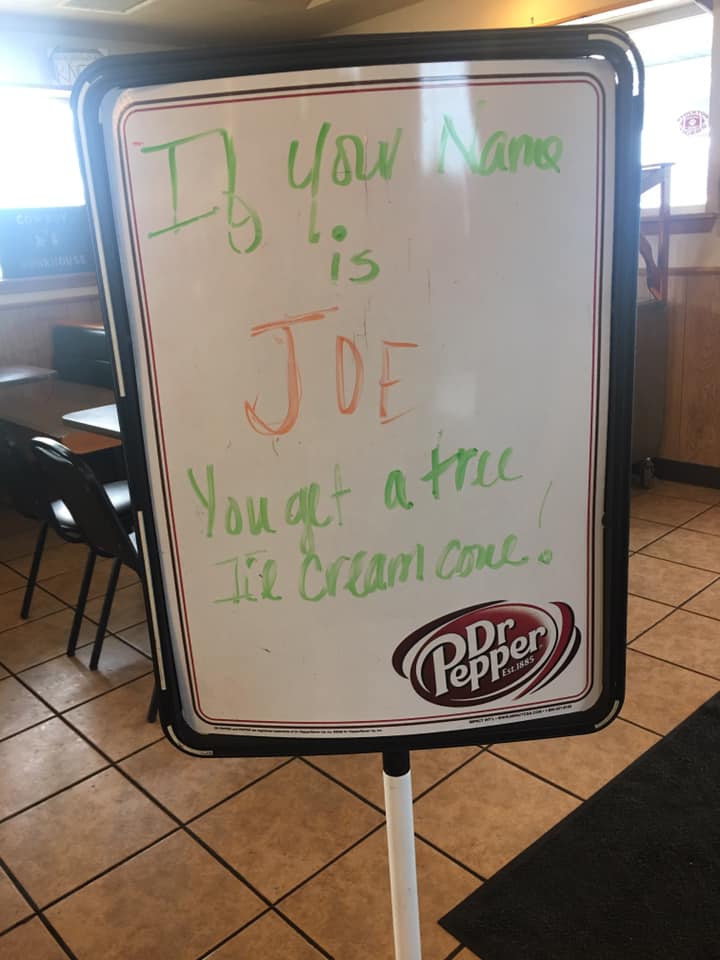 If your Name
is
JOE
You get a free
Ice Cream cone!
Dr
Pepper
Est. 1885
COWBOY